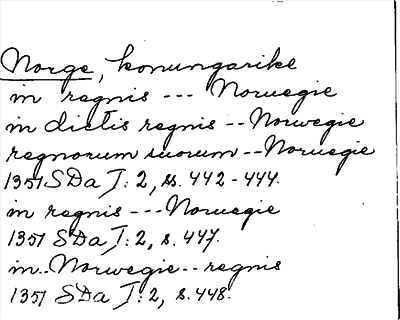 Norge, konungarike
in regnis --- Noruegie
in dictis regnis -- Norwegie
regnorum suorum -- Noruegie
1351 SDa I: 2, ss. 442-444.
in regnis --- Noruegie
1351 SDa I: 2, s. 447.
in.. Norwegie -- regnis
1351 SDa I: 2, s. 448.